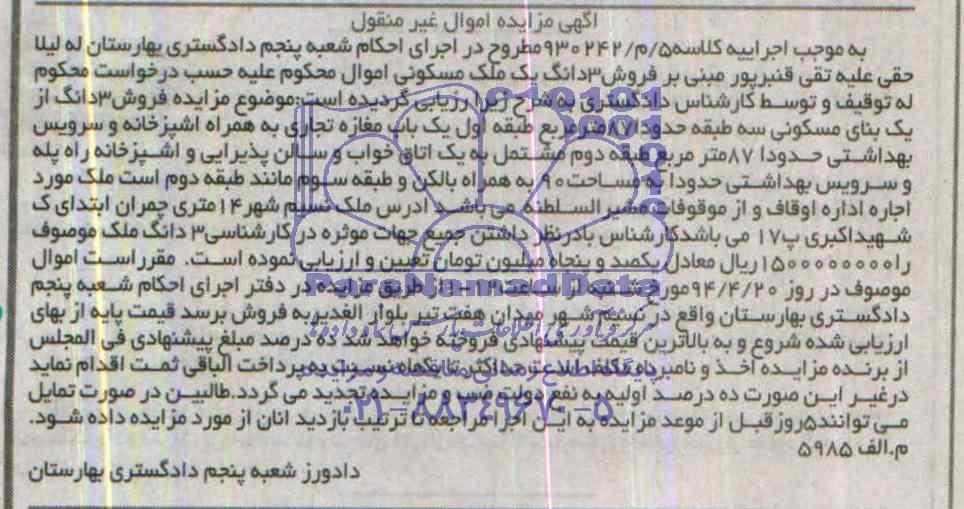 آگهی مزایده اموال غیر منقول
به موجب اجراییه کلاسه ۵/م/۹۳۰۲۴۲ مطروح در اجرای احکام شعبه پنجم دادگستری بهارستان له لیلا
حقی علیه تقی قنبرپور مبنی بر فروش ۳دانگ یک ملک مسکونی اموال محکوم علیه حسب درخواست محکوم
له توقیف و توسط کارشناس دادگستری به شرح زیر ارزیابی گردیده است:موضوع مزایده فروش ۳دانگ از
یک بنای مسکونی سه طبقه حدودا ۸۷مترمربع طبقه اول یک باب مغازه تجاری به همراه اشپزخانه و سرویس
بهداشتی حدودا ۸۷متر مربع طبقه دوم مشتمل به یک اتاق خواب و سالن پذیرایی و اشپزخانه راه پله
و سرویس بهداشتی حدودا به مساحت ۹۰ به همراه بالکن و طبقه سوم مانند طبقه دوم است ملک مورد
اجاره اداره اوقاف و از موقوفات مشیر السلطنه می باشد ادرس ملک نسیم شهر ۱۴متری چمران ابتدای ک
شهیداکبری پ۱۷ می باشدکارشناس بادرنظر داشتن جمیع جهات موثره در کارشناسی ۳ دانگ ملک موصوف
را ۱۵۰۰۰۰۰۰۰۰ ریال معادل یکصد و پنجاه میلیون تومان تعیین و ارزیابی نموده است. مقرراست اموال
موصوف در روز ۹۴/۴/۲۰مورخ شنبه از ساعت ۱۲-۱۰از طریق مزایده در دفتر اجرای احکام شعبه پنجم
دادگستری بهارستان واقع در نسیم شهر میدان هفت تیر بلوار الغدیر به فروش برسد قیمت پایه از بهای
ارزیابی شده شروع و به بالاترین قیمت پیشنهادی فروخته خواهد شد ده درصد مبلغ پیشنهادی فی المجلس
از برنده مزایده اخذ و نامبرده مکلف است حداکثر تا یکماه نسبت به پرداخت الباقی ثمت اقدام نماید
درغیر این صورت ده درصد اولیه به نفع دولت ضبط و مزایده تجدید می گردد.طالبین در صورت تمایل
می توانند ۵روز قبل از موعد مزایده به این اجرا مراجعه تا ترتیب بازدید انان از مورد مزایده داده شود.
م.الف ۵۹۸۵
دادورز شعبه پنجم دادگستری بهارستان
ParsNamadData
۰۲۱-۸۸۳۴۹۶۷۰-۵